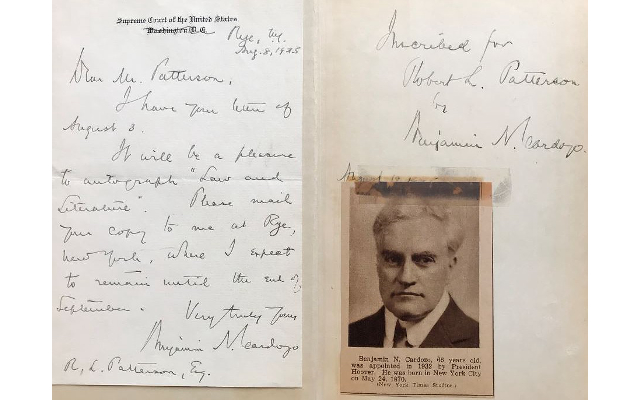 Supreme Court of the United States
Washington, D.C.
Rye, N.Y.
Aug. 8, 1935
Dear Mr. Patterson,
I have your letter of
August 3.
It will be a pleasure
to autograph "Law and
Literature". Please mail
your copy to me at Rye,
New York, where I expect
to remain until the end of
September.
Very truly yours
Benjamin N. Cardozo
R. L. Patterson, Esq.
Inscribed for
Robert L. Patterson
by
Benjamin N. Cardozo.
Benjamin N. Cardozo, 65 years old,
was appointed in 1932 by President
Hoover. He was born in New York City
on May 24, 1870.
(New York Times Studios)